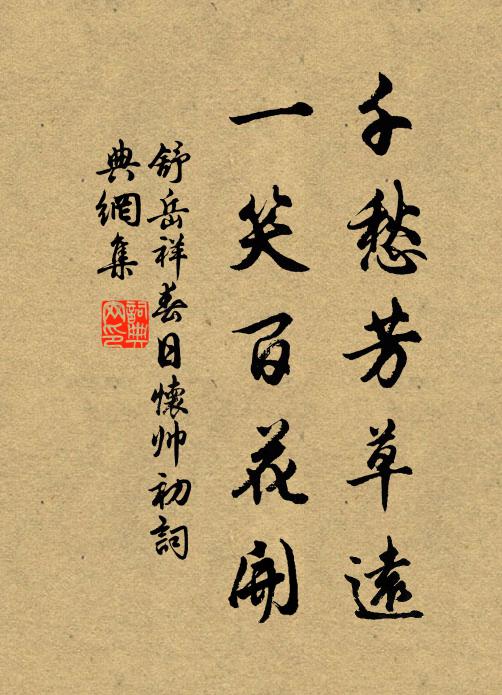 千愁芳草遠
一笑百花開
舒岳祥春日懷帅初詞
典網集
詞典
网印